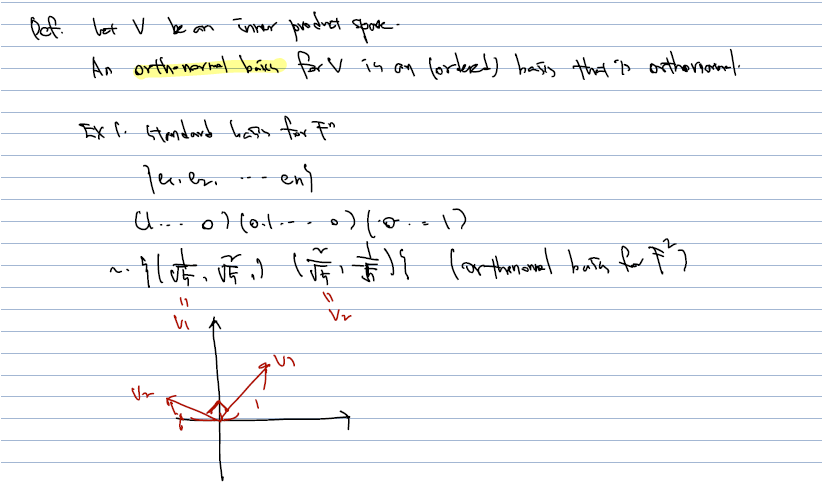 Def. Let V be an inner product space.
An orthonormal basis for V is an (ordered) basis that is orthonormal.
EX 1. Standard basis for Fⁿ
{e₁, e₂, ... en}
(1 ... 0) (0.1 ... 0) (0 .. 1)
2. {(1/√5, 2/√5,) (2/√5, 1/√5)} (orthonormal basis for F²)
" "
V₁ V₂
V₁
V₂
1